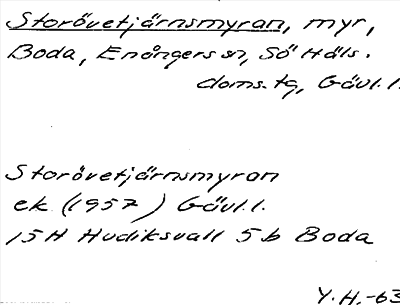 Storövetjärnsmyran, myr,
Boda, Enångers sn, Sö Häls.
doms. tg, Gävl. l.
Storövetjärnsmyran
ek (1957) Gävl. l.
15H Hudiksvall 5b Boda
Y. H. -63